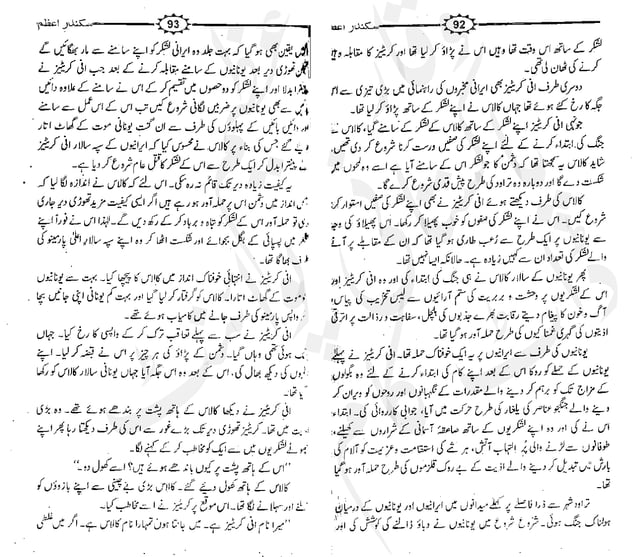 سکندر اعظم 92
لشکر کے ساتھ اس وقت تھا وہیں اس نے پڑاؤ کر لیا تھا اور کریٹیز کا مقابلہ وہیں
کرنے کی ٹھان لی تھی۔
دوسری طرف انی کریٹیز بھی ایرانی مخبروں کی راہنمائی میں بڑی تیزی سے اس
جگہ کا رخ کئے ہوئے تھا جہاں کالاس نے اپنے لشکر کے ساتھ پڑاؤ کر لیا تھا۔
جونہی انی کریٹیز اپنے لشکر کے ساتھ کالاس کے لشکر کے سامنے گیا، کالاس نے
جنگ کی ابتداء کرنے کے لئے اپنے لشکر کی صفیں درست کرنا شروع کر دی تھیں،
شاید کالاس یہ سمجھتا تھا کہ دشمن کا جو لشکر اس کے سامنے آیا ہے اسے وہ لمحوں میں
شکست دے گا اور دوبارہ وہ تراود کی طرح پیش قدمی شروع کر دے گا۔
کالاس کی طرف دیکھتے ہوئے انی کریٹیز نے بھی اپنے لشکر کی صفیں استوار کرنا
شروع کیں۔ اس نے اپنے لشکر کی صفوں کو خوب پھیلا کر رکھا۔ اس پھیلاؤ کی وجہ
سے یونانیوں پر ایک طرح سے رعب طاری ہو گیا تھا کہ ان کے مقابلے پر آنے
والے لشکر کی تعداد ان سے کہیں زیادہ ہے۔ حالانکہ ایسا نہیں تھا۔
پھر یونانیوں کے سالار کالاس نے ہی جنگ کی ابتداء کی اور وہ انی کریٹیز اور
اس کے لشکریوں پر وحشت و بربریت کی ستم آرائیوں سے لیس تخریب کی پیاس،
آگ و خون کا پیغام دیتے رقابت بھرے جذبوں کی ہلچل، سفاہت و رذالت پر اترتی
اذیتوں کی گہری غمناکیوں کی طرح حملہ آور ہو گیا تھا۔
یونانیوں کی طرف سے ایرانیوں پر یہ ایک خوفناک حملہ تھا۔ انی کریٹیز نے پہلے
یونانیوں کے حملے کو روکا اس کے بعد اپنے کام کی ابتداء کرتے ہوئے وہ بگولوں
کے مزاج تک کو برہم کر دینے والے مقدرات کے نگہبانوں اور روحوں کو ویران کر
دینے والے جنگجو عناصر کی یلغار کی طرح حرکت میں آیا، جوابی کارروائی کی۔ ابتداء
اس نے کی اور وہ اپنے لشکریوں کے ساتھ صاعقہ آسمانی کے شراروں سے کھیلتے،
طوفانوں سے لڑنے والی پر التہاب آتش، ہر شے کی استقامت و عزیمت کو آلام کی
بارش میں تبدیل کر دینے والے اذیت کے بے روک قلزموں کی طرح حملہ آور ہو گیا
تھا۔
تراود شہر سے ذرا فاصلے پر کھلے میدانوں میں ایرانیوں اور یونانیوں کے درمیان
ہولناک جنگ ہوئی۔ شروع شروع میں یونانیوں نے دباؤ ڈالنے کی کوشش کی اور
سکندر اعظم 93
انہیں یقین بھی ہو گیا کہ بہت جلد وہ ایرانی لشکر کو اپنے سامنے سے مار بھگائیں گے
لیکن تھوڑی دیر بعد یونانیوں کے سامنے مقابلہ کرنے کے بعد جب انی کریٹیز نے
پینترا بدلا اور اپنے لشکر کو دو حصوں میں تقسیم کر کے اس نے سامنے کے علاوہ دائیں
بائیں سے بھی یونانیوں پر ضربیں لگانی شروع کیں تب اس کے اس عمل سے سامنے
اور دائیں بائیں کے پہلوؤں کی طرف سے ان گنت یونانی موت کے گھاٹ اتار
دیئے گئے جس کی بناء پر کالاس نے محسوس کیا کہ ایرانیوں کے سپہ سالار انی کریٹیز
نے پینترا بدل کر ایک طرح سے اس کے لشکر کا قتل عام شروع کر دیا ہے۔
یہ کیفیت زیادہ دیر تک قائم نہ رہ سکی۔ اس لئے کہ کالاس نے اندازہ لگا لیا کہ
جس انداز میں اس پر حملہ آور ہو رہے ہیں اگر ایسی کیفیت مزید تھوڑی دیر جاری
رہی تو حملہ آور اس کے لشکر کو تباہ و برباد کر کے رکھ دیں گے۔ لہٰذا اس نے فوراً اپنے
لشکر میں پسپائی کے بگل بجوائے اور شکست اٹھا کر وہ اپنے سپہ سالار اعلیٰ پارمینو کی
طرف بھاگا تھا۔
انی کریٹیز نے انتہائی خوفناک انداز میں کالاس کا پیچھا کیا۔ بہت سے یونانیوں
کو موت کے گھاٹ اتارا۔ کالاس کو گرفتار کر لیا گیا اور بہت کم یونانی اپنی جانیں بچا
کر واپس پارمینو کی طرف جانے میں کامیاب ہوئے تھے۔
انی کریٹیز نے سب سے پہلے تعاقب ترک کر کے واپسی کا رخ کیا۔ جہاں
جنگ ہوئی تھی وہاں گیا۔ دشمن کے پڑاؤ کی ہر چیز پر اس نے قبضہ کر لیا۔ اپنے
زخمیوں کی دیکھ بھال کی، اس کے بعد وہ اس جگہ آیا جہاں یونانی سالار کالاس کو رکھا
گیا تھا۔
انی کریٹیز نے دیکھا کالاس کے ہاتھ پشت پر بندھے ہوئے تھے۔ وہ بڑی
انی کریٹیز تھوڑی دیر تک بڑے غور سے اس کی طرف دیکھتا رہا پھر اپنے
لشکریوں میں سے ایک کو مخاطب کر کے کہنے لگا۔
"اس کے ہاتھ پشت پر کیوں باندھے ہوئے ہیں؟ اسے کھول دو۔"
کالاس کے ہاتھ کھول دیئے گئے۔ کالاس بڑی بے چینی سے اپنے بازوؤں کو
ملنے اور سہلانے لگا تھا۔ اس موقع پر کریٹیز نے اسے مخاطب کیا۔
"میرا نام انی کریٹیز ہے۔ میں جانتا ہوں تمہارا نام کالاس ہے۔ اگر میں غلطی